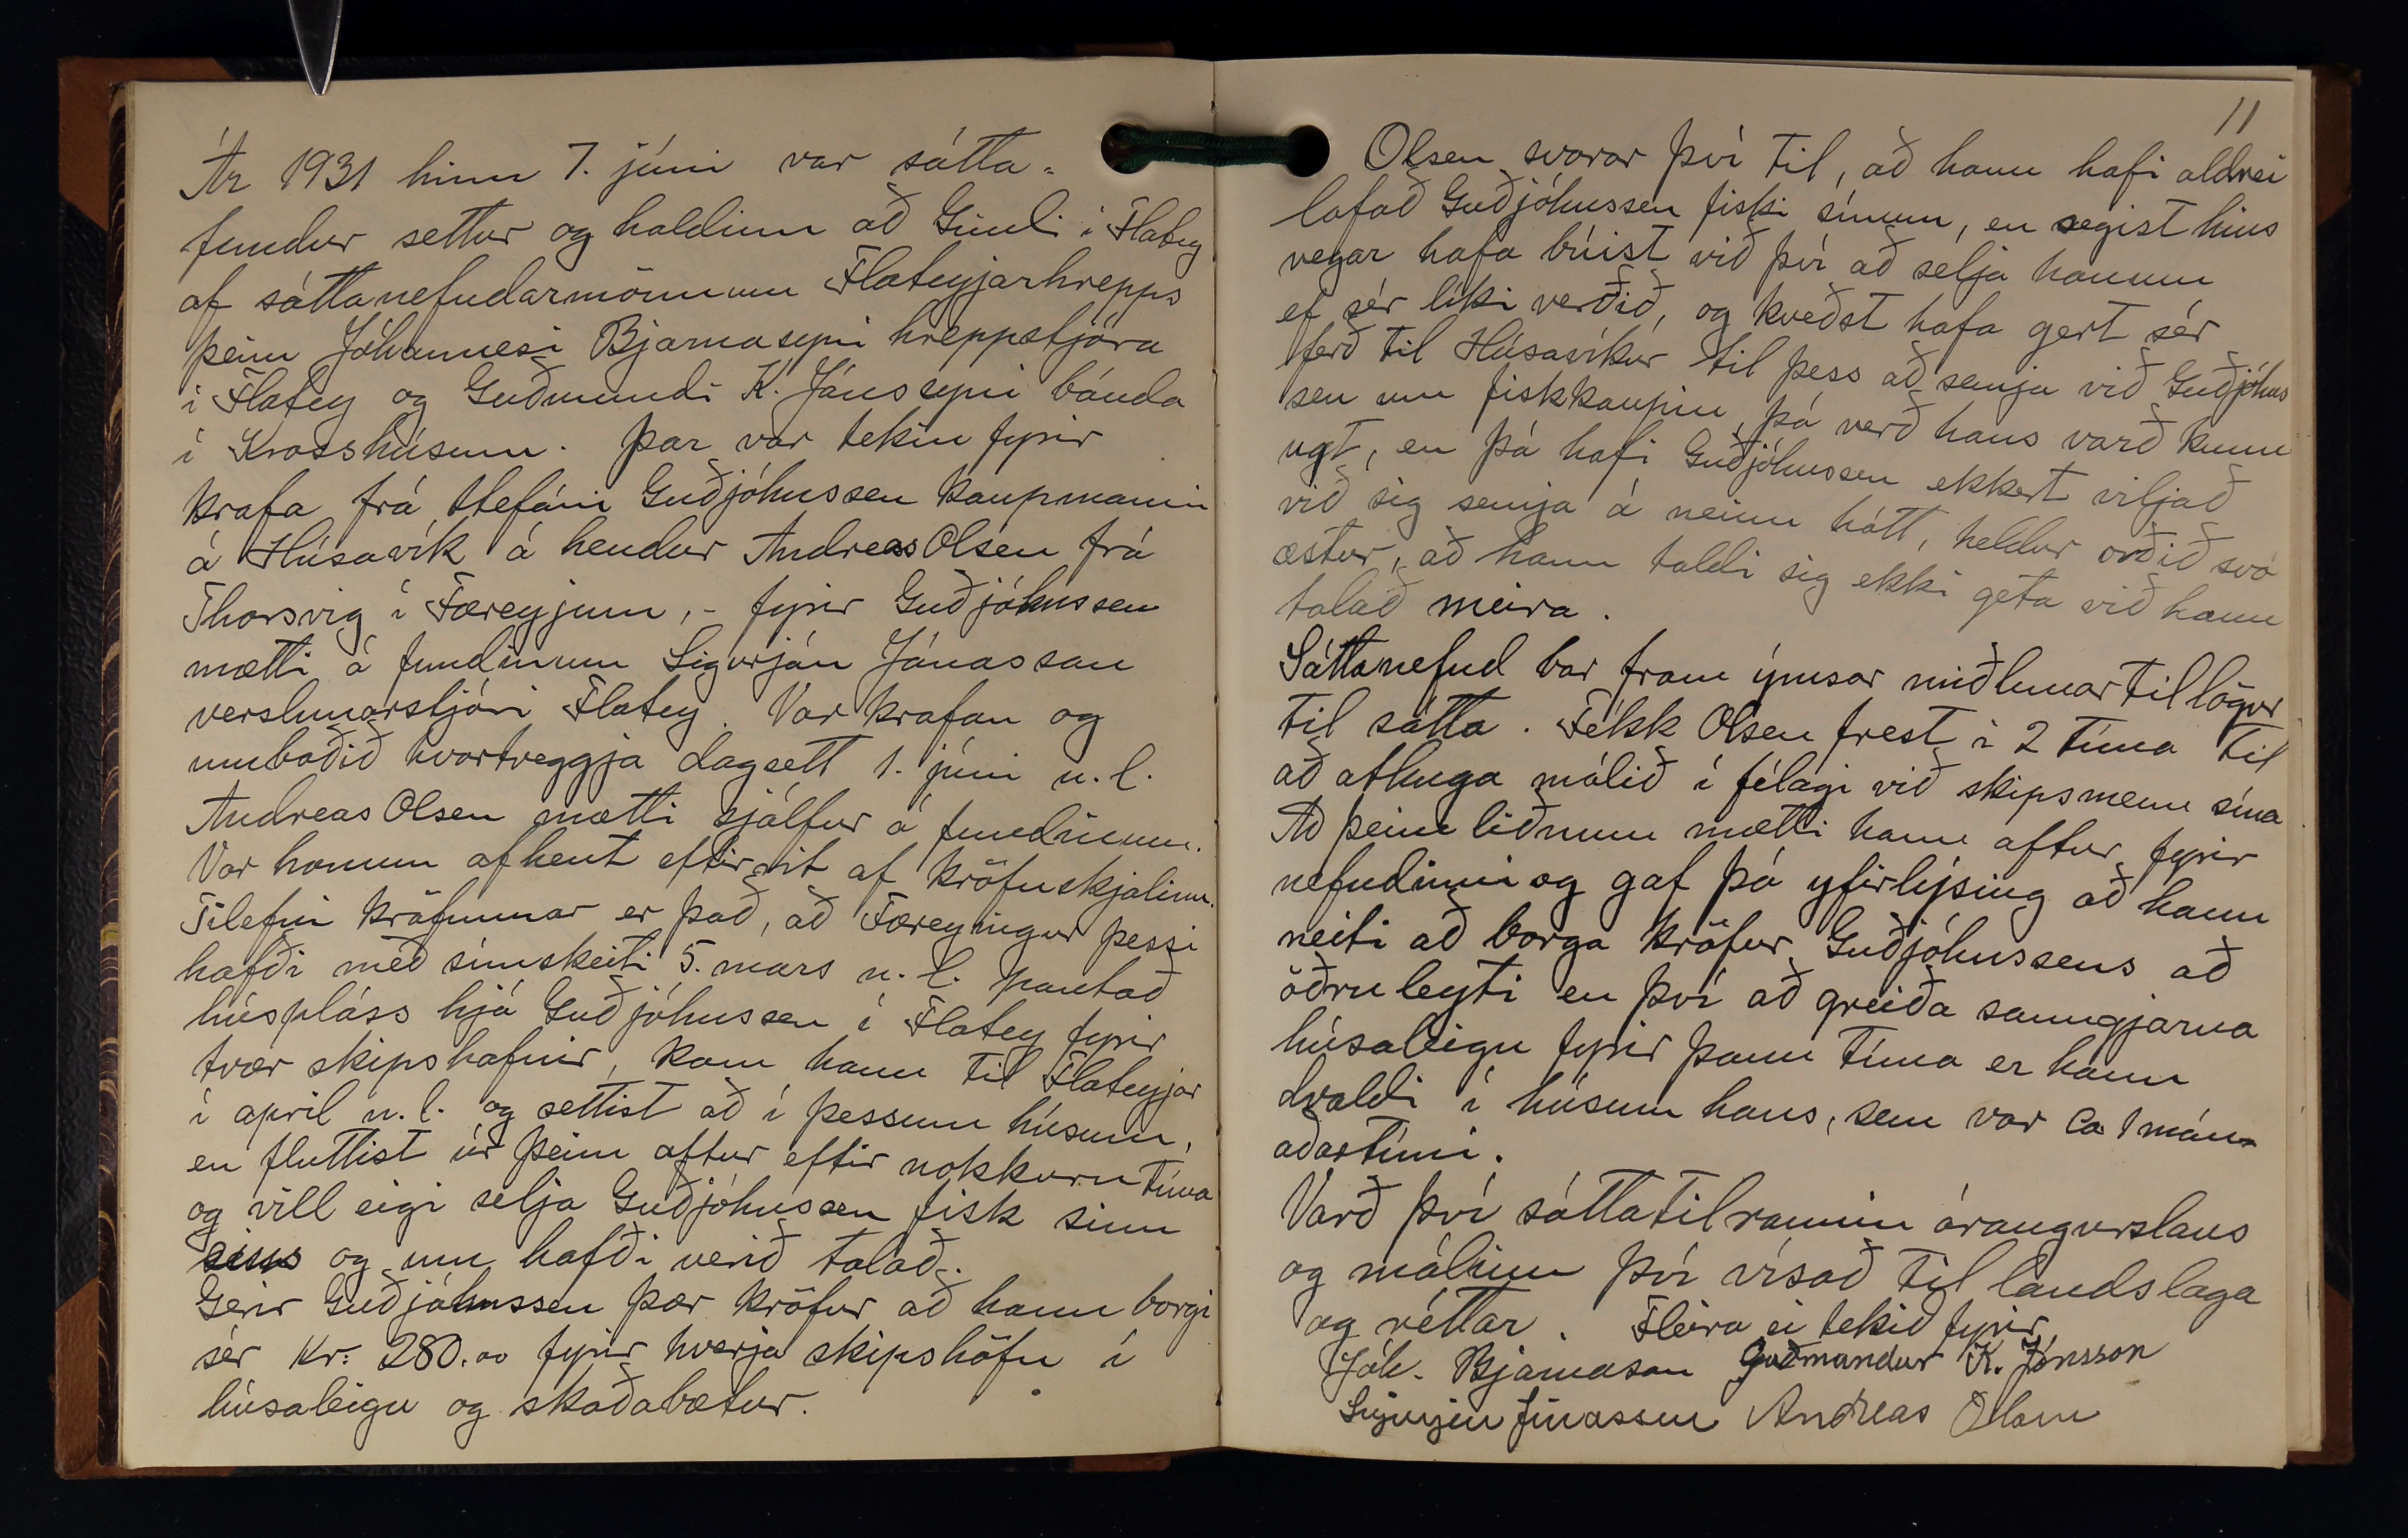 Ár 1931 hinn 7. júní var sátta-
fundur settur og haldinn að Gimli í Flatey
af sáttanefndarmönnum Flateyjarhrepps
þeim Jóhannesi Bjarnasyni hreppstjóra
í Flatey og Guðmundi K. Jónssyni bónda
í Krosshúsum. Þar var tekin fyrir
krafa frá Stefáni Guðjóhnssen kaupmanni
á Húsavík á hendur Andreas Olsen frá
Thorsvig í Færeyjum, - fyrir Guðjóhnssen
mætti á fundinum Sigurjón Jónasson
verslunarstjóri Flatey. Var krafan og
umboðið hvortveggja dagsett 1. júní n.l.
Andreas Olsen mætti sjálfur á fundinum.
Var honum afhent eftirrit af kröfuskjalinu.
Tilefni kröfunnar er það, að Færeyingur þessi
hafði með símskeiti 5. mars n.l. pantað
húspláss hjá Guðjóhnssen í Flatey fyrir
tvær skipshafnir, kom hann til Flateyjar
í april n.l. og settist að í þessum húsum,
en fluttist úr þeim aftur eftir nokkurn tíma
og vill eigi selja Guðjóhnssen fisk sinn
eins og um hafði verið talað.
Gerir Guðjóhnssen þær kröfur að hann borgi
sér Kr: 280.00 fyrir hverja skipshöfn í
húsaleigu og skaðabætur.
11
Olsen svarar því til, að hann hafi aldrei
lofað Guðjóhnssen fiski sínum, en segist hins
vegar hafa búist við því að selja honum
ef sér líki verðið, og kveðst hafa gert sér
ferð til Húsavíkur til þess að semja við Guðjóhns
sen um fiskkaupin, þá verð hans varð kunn
ugt, en þá hafi Guðjóhnssen ekkert viljað
við sig semja á neinn hátt, heldur orðið svo
æstur, að hann taldi sig ekki geta við hann
talað meira.
Sáttanefnd bar fram ýmsar miðlunartillögur
til sátta. Fékk Olsen frest í 2 tíma til
að athuga málið í félagi við skipsmenn sína
Að þeim liðnum mætti hann aftur fyrir
nefndinni og gaf þá yfirlýsing að hann
neiti að borga kröfur Guðjóhnssens að
öðru leyti en því að greiða sanngjarna
húsaleigu fyrir þann tíma er hann
dvaldi í húsum hans, sem var ca 1 mán-
aðartími.
Varð því sáttatilraunin árangurslaus
og málinu því vísað til landslaga
og réttar. Fleira ei tekið fyrir
Jóh. Bjarnason Guðmundur K. Jónsson
Sigurjón Jónasson Andreas Olsen